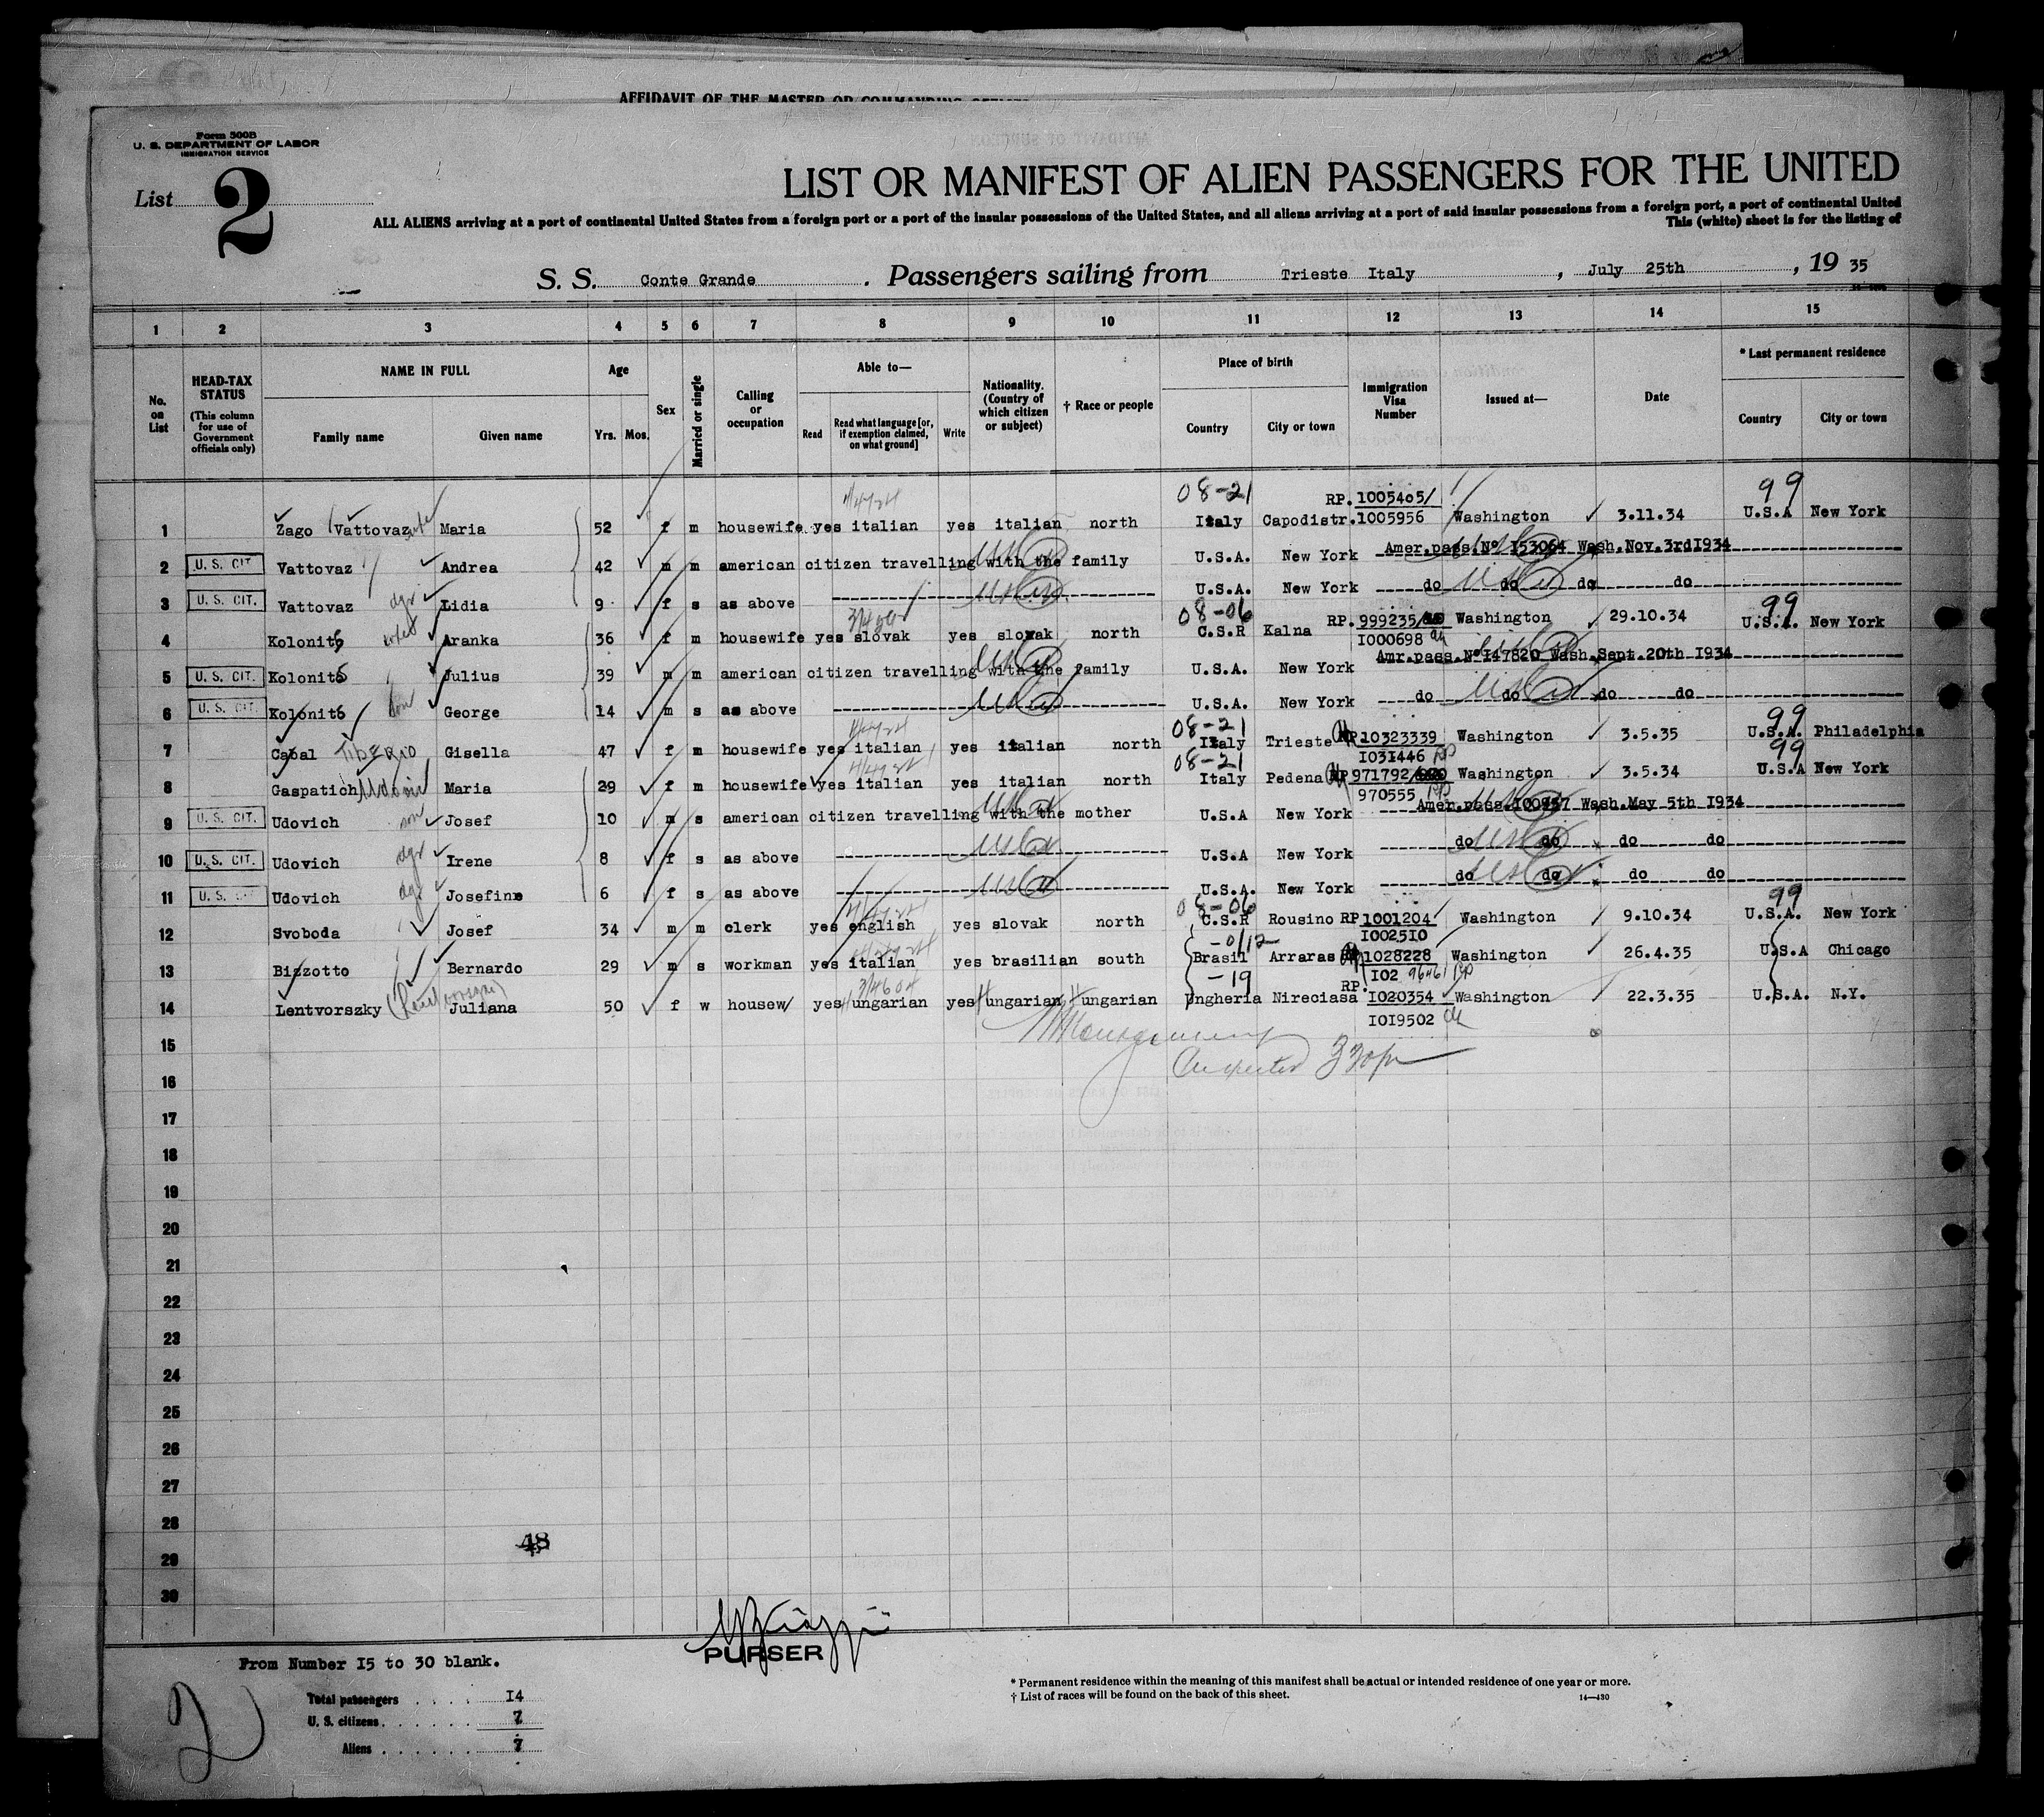 AFFIDAVIT OF THE MASTER OR COMMANDING
Form 500B
U. S. DEPARTMENT OF LABOR
IMMIGRATION SERVICE
List 2
LIST OR MANIFEST OF ALIEN PASSENGERS FOR THE UNITED
ALL ALIENS arriving at a port of continental United States from a foreign port or a port of the insular possessions of the United States, and all aliens arriving at a port of said insular possessions from a foreign port, a port of continental United
This (white) sheet is for the listing of
S. S. Conte Grande. Passengers sailing from Trieste Italy, July 25th, 19 35
1 2 3 4 5 6 7 8 9 10 11 12 13 14 15
No. on List
HEAD-TAX STATUS (This column for use of Government officials only)
NAME IN FULL Family name Given name
Age Yrs. Mos.
Sex
Married or single
Calling or occupation
Able to— Read Read what language [or, if exemption claimed, on what ground] Write
Nationality. (Country of which citizen or subject)
† Race or people
Place of birth Country City or town
Immigration Visa Number
Issued at—
Date
* Last permanent residence Country City or town
08-21 RP. 1005405/ 99
1 Zago (Vattovaz wife Maria 52 f m housewife yes italian yes italian north Italy Capodistr. 1005956 Washington 3.11.34 U.S.A New York
2 U. S. CIT Vattovaz Andrea 42 m m american citizen travelling with the family U.S.A. New York Amer.pass.Nº I53064 Wash.Nov.3rdI934
3 U. S. CIT. Vattovaz dgr Lidia 9 f s as above U.S.A. New York do do do do
08-06 99
4 Kolonits wife Aranka 36 f m housewife yes slovak yes slovak north C.S.R Kalna RP. 999235/ I000698 Washington 29.10.34 U.S.A. New York
5 U. S. CIT. Kolonits Julius 39 m m american citizen travelling with the family U.S.A. New York Amr.pass.NºI47820 Wash.Sept.20th I934
6 U. S. CIT. Kolonits son George 14 m s as above U.S.A. New York do do do do
08-21 99
7 Cabal TIBERIO Gisella 47 f m housewife yes italian yes italian north Italy Trieste RP. 10323339 I031446 RP Washington 3.5.35 U.S.A. Philadelphia
08-21 99
8 Gaspatich Maria 29 f m housewife yes italian yes italian north Italy Pedena RP 971792/ 970555 Washington 3.5.34 U.S.A New York
9 U. S. CIT. Udovich son Josef 10 m s american citizen travelling with the mother U.S.A New York Amer.pass.I00957 Wash.May 5th I934
10 U. S. CIT. Udovich dgr Irene 8 f s as above U.S.A New York do do do do
11 U. S. CIT Udovich dgr Josefine 6 f s as above U.S.A. New York do do do do
08-06 99
12 Svoboda Josef 34 m m clerk yes english yes slovak north C.S.R Rousino RP 1001204 I002510 Washington 9.10.34 U.S.A. New York
13 Bizzotto Bernardo 29 m s workman yes italian yes brasilian south Brasil Arraras 1028228 I02 96461 RP Washington 26.4.35 U.S.A Chicago
-19
14 Lentvorszky Juliana 50 f w housew/ yes Hungarian yes Hungarian Hungarian Ungheria Nireciasa RP. I020354 I0I9502 Washington 22.3.35 U.S.A. N.Y.
15
16
17
18
19
20
21
22
23
24
25
26
27
28
29
30
48
PURSER
From Number I5 to 30 blank.
2
Total passengers . . . . I4
U. S. citizens . . . . . . 7
Aliens . . . . . . 7
* Permanent residence within the meaning of this manifest shall be actual or intended residence of one year or more.
† List of races will be found on the back of this sheet.
14—430